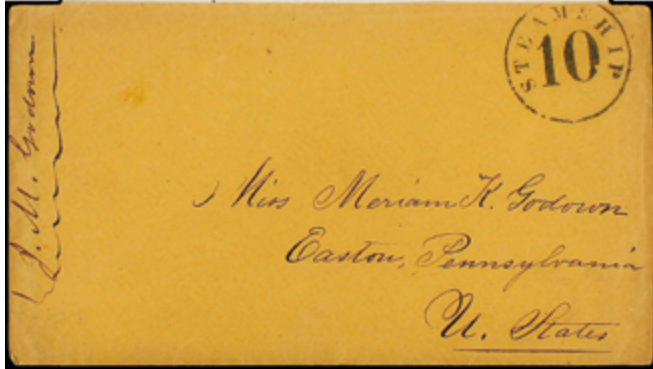 STEAMSHIP
10
J. M. Godown
Miss Meriam K. Godown
Easton, Pennsylvania
U. States